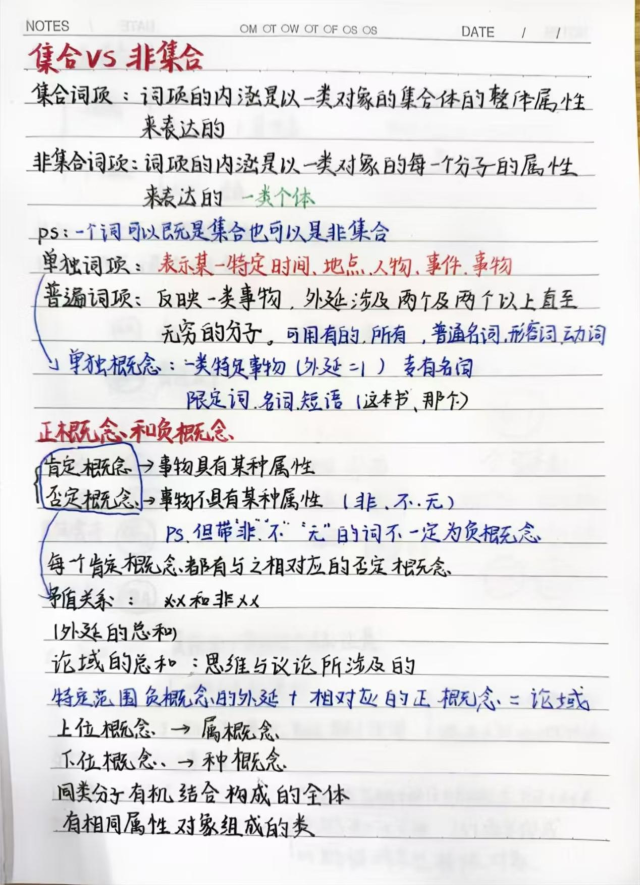 NOTES
OM OT OW OT OF OS OS
DATE / /
集合VS 非集合
集合词项：词项的内涵是以一类对象的集合体的整体属性
来表达的
非集合词项：词项的内涵是以一类对象的每一个分子的属性
来表达的 一类个体
ps：一个词可以既是集合也可以是非集合
单独词项：表示某一特定时间、地点、人物、事件、事物
普遍词项：反映一类事物，外延涉及两个及两个以上直至
无穷的分子。可用有的，所有，普通名词，形容词，动词
单独概念：一类特定事物（外延=1）专有名词
限定词、名词、短语（这本书、那个）
正概念和负概念
肯定概念→事物具有某种属性
否定概念→事物不具有某种属性（非、不、无）
PS、但带"非""不""无"的词不一定为负概念
每个肯定概念都有与之相对应的否定概念
矛盾关系：xx和非xx
（外延的总和）
论域的总和：思维与议论所涉及的
特定范围负概念的外延+相对应的正概念=论域
上位概念→属概念
下位概念→种概念
同类分子有机结合构成的全体
有相同属性对象组成的类